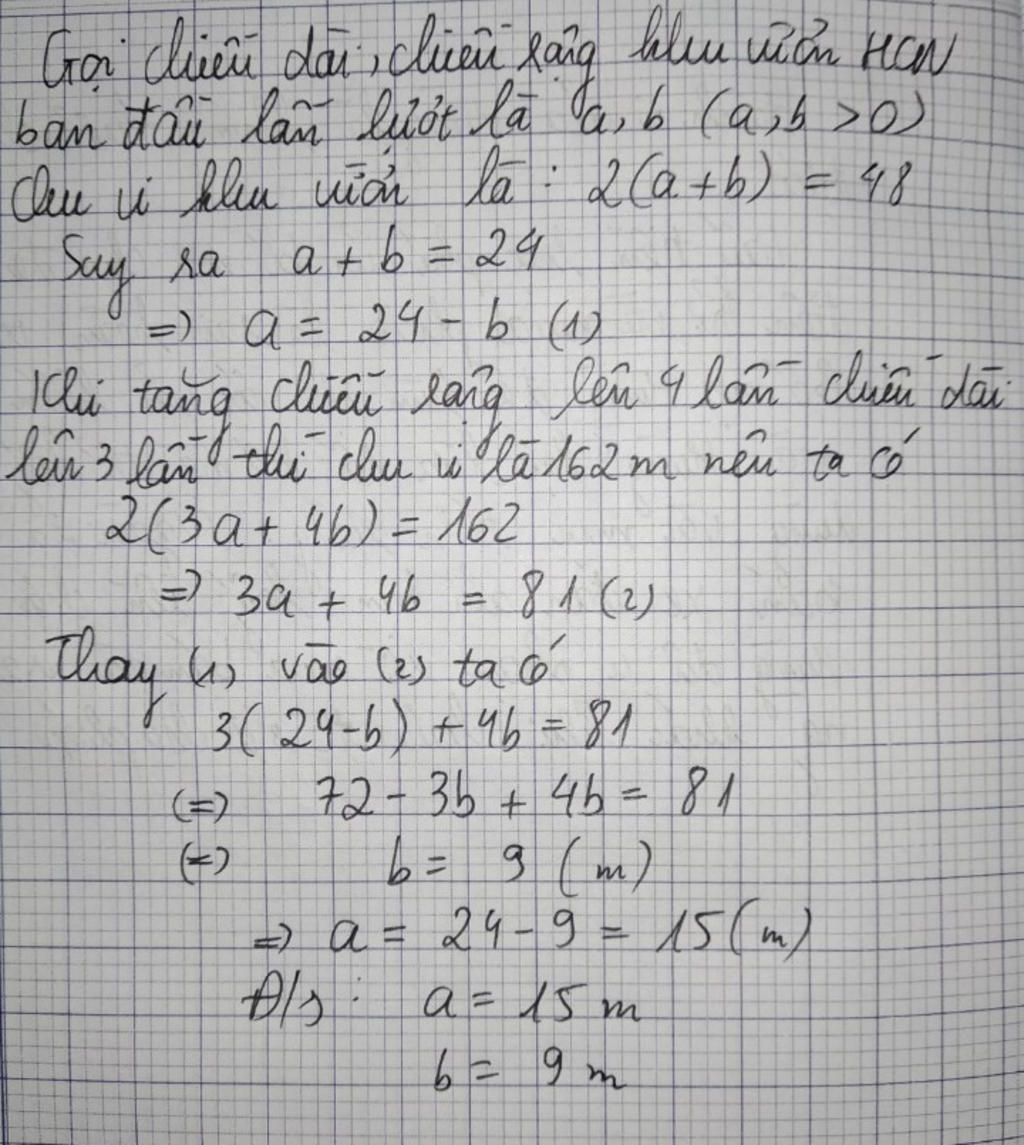 Gọi chiều dài, chiều rộng khu vườn HCN
ban đầu lần lượt là a, b (a, b > 0)
Chu vi khu vườn là : 2(a+b) = 48
Suy ra a + b = 24
=> a = 24 - b (1)
Khi tăng chiều rộng lên 4 lần chiều dài
lên 3 lần thì chu vi là 162 m nên ta có
2(3a + 4b) = 162
=> 3a + 4b = 81 (2)
Thay (1) vào (2) ta có
3(24-b) + 4b = 81
(=) 72 - 3b + 4b = 81
(=) b = 9 (m)
=> a = 24 - 9 = 15 (m)
Đ/s : a = 15 m
b = 9 m